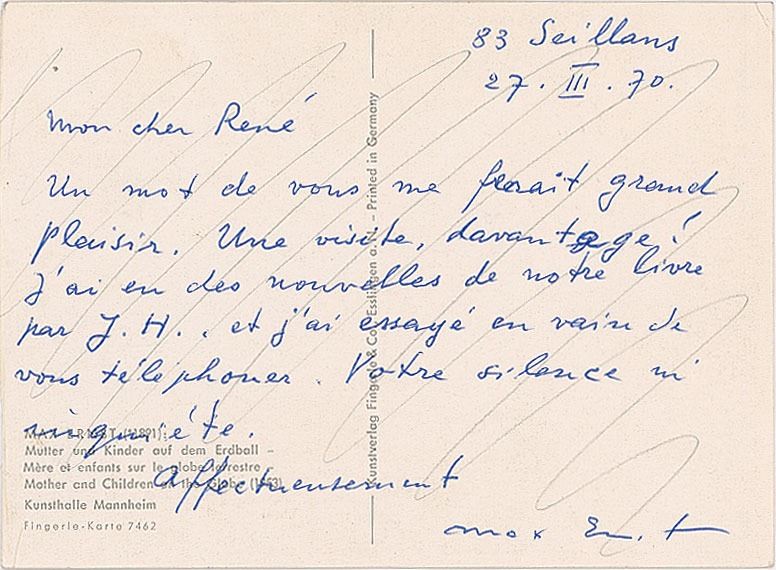 83 Seillans
27. III. 70.
Mon cher René
Un mot de vous me ferait grand
plaisir. Une visite, davantage!
J'ai eu des nouvelles de notre livre
par J. H., et j'ai essayé en vain de
vous téléphoner. Votre silence m'
inquiète.
Affectueusement
max Ernst
MAX ERNST (*1891):
Mutter und Kinder auf dem Erdball –
Mère et enfants sur le globe terrestre
Mother and Children on the Globe (1953)
Kunsthalle Mannheim
Fingerle-Karte 7462
Kunstverlag Fingerle & Co., Esslingen a. N. – Printed in Germany